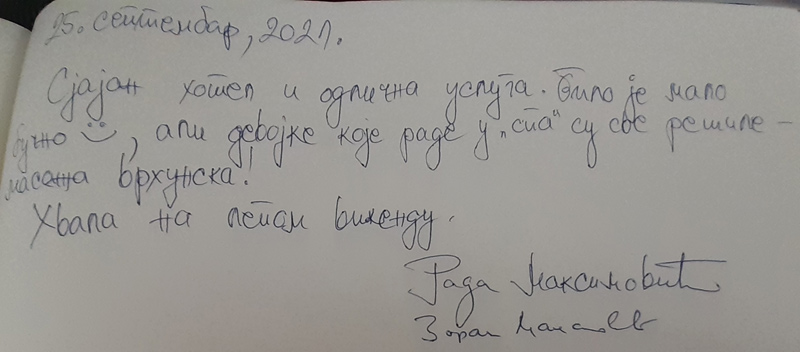 25. септембар, 2021.
Сјајан хотел и одлична услуга. Било је мало
бучно :), али девојке које раде у „спа“ су све решиле –
масажа врхунска!
Хвала на лепом викенду.
Рада Максимовић
Зоран